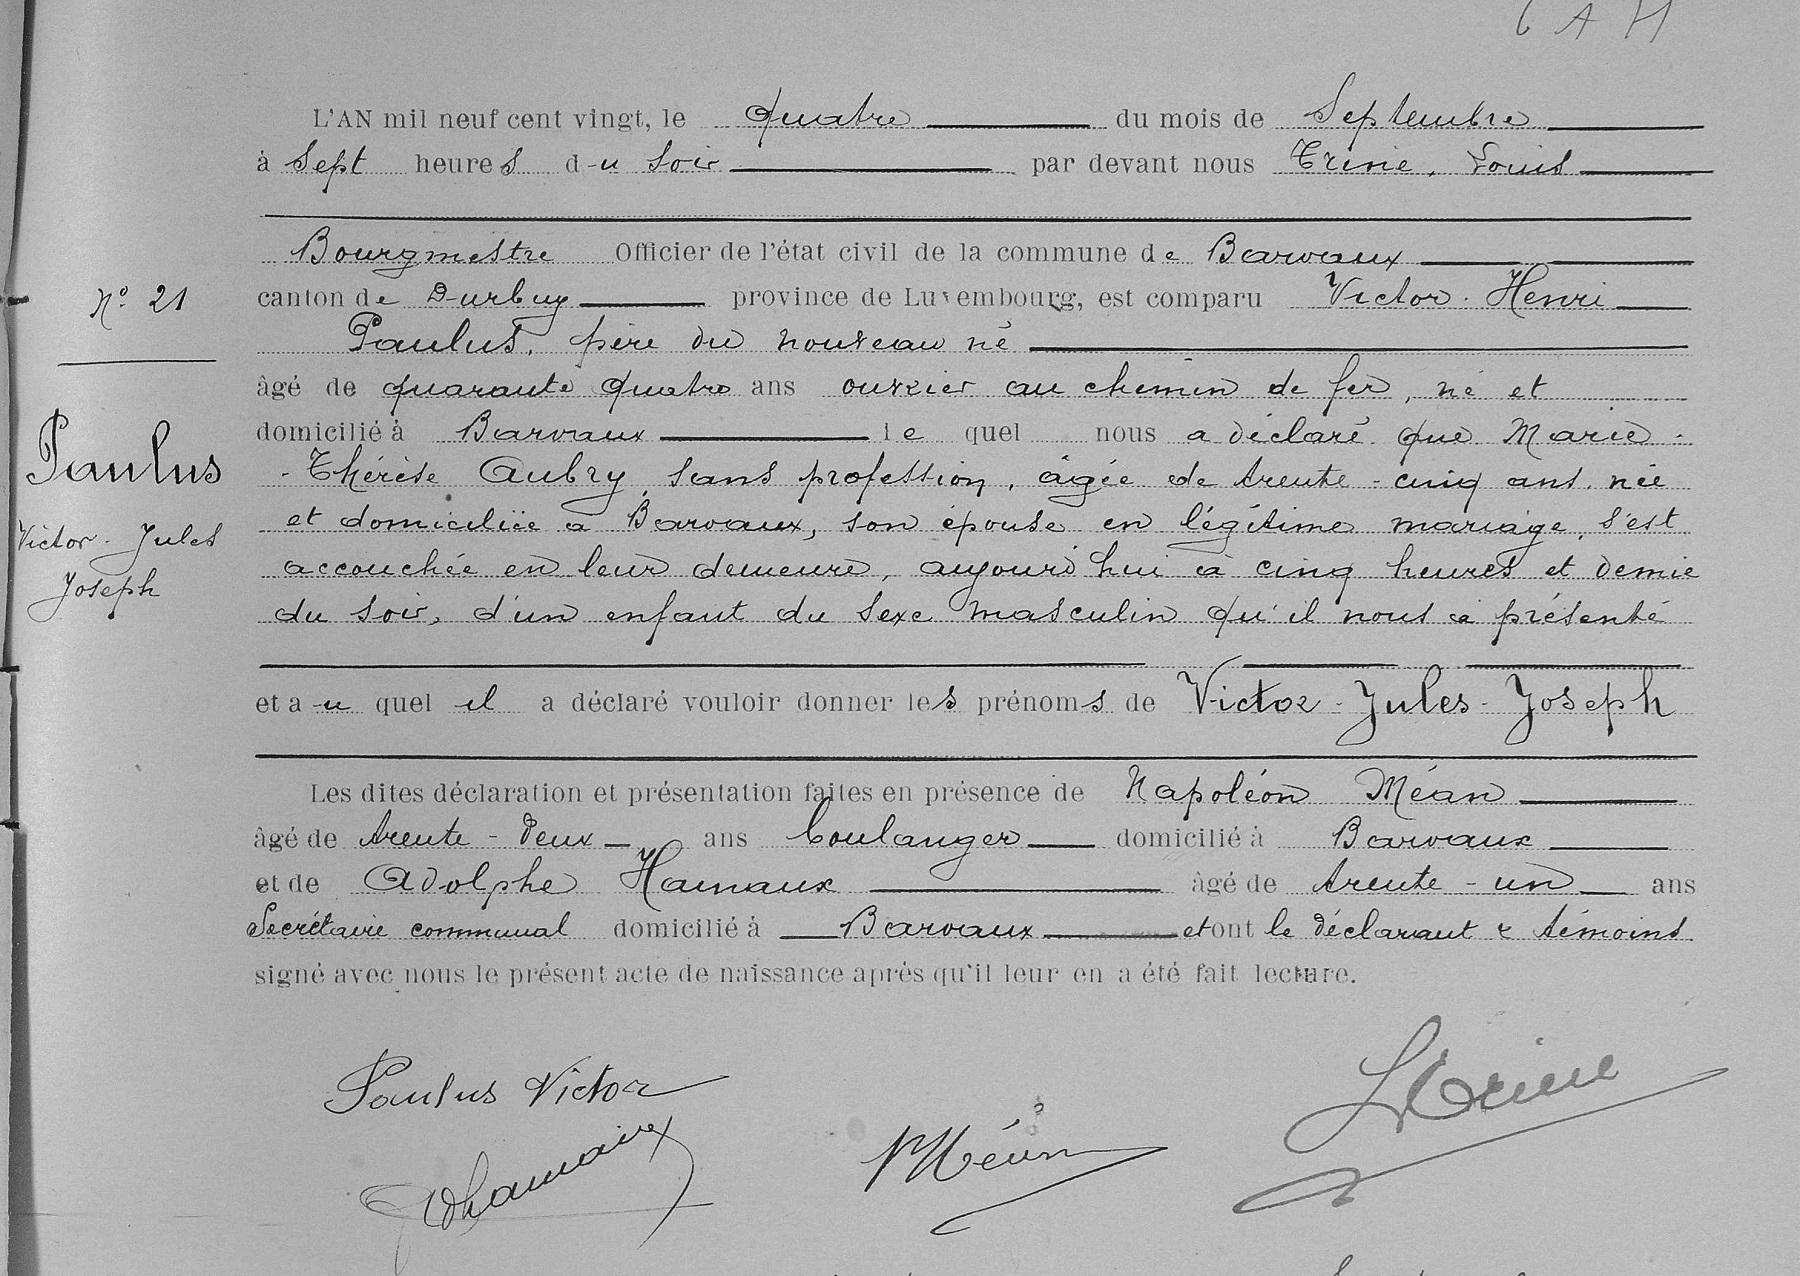 6 A H
L'AN mil neuf cent vingt, le quatre du mois de Septembre
à sept heures du soir par devant nous Trine, Louis
Bourgmestre Officier de l'état civil de la commune de Barvaux
canton de Durbuy province de Luxembourg, est comparu Victor-Henri
N° 21
Paulus, père du nouveau né
âgé de quarante quatre ans ouvrier au chemin de fer, né et
domicilié à Barvaux lequel nous a déclaré que Marie-
Paulus
-Thérèse Aubry, sans profession, âgée de trente-cinq ans, née
et domiciliée à Barvaux, son épouse en légitime mariage, s'est
Victor-Jules
accouchée en leur demeure, aujourd'hui à cinq heures et demie
Joseph
du soir, d'un enfant du sexe masculin qu'il nous a présenté
et au quel il a déclaré vouloir donner les prénoms de Victor-Jules-Joseph
Les dites déclaration et présentation faites en présence de Napoléon Méan
âgé de trente-deux ans boulanger domicilié à Barvaux
et de Adolphe Hamaux âgé de trente-un ans
Secrétaire communal domicilié à Barvaux et ont le déclarant & témoins
signé avec nous le présent acte de naissance après qu'il leur en a été fait lecture.
Paulus Victor
L Trine
N Méan